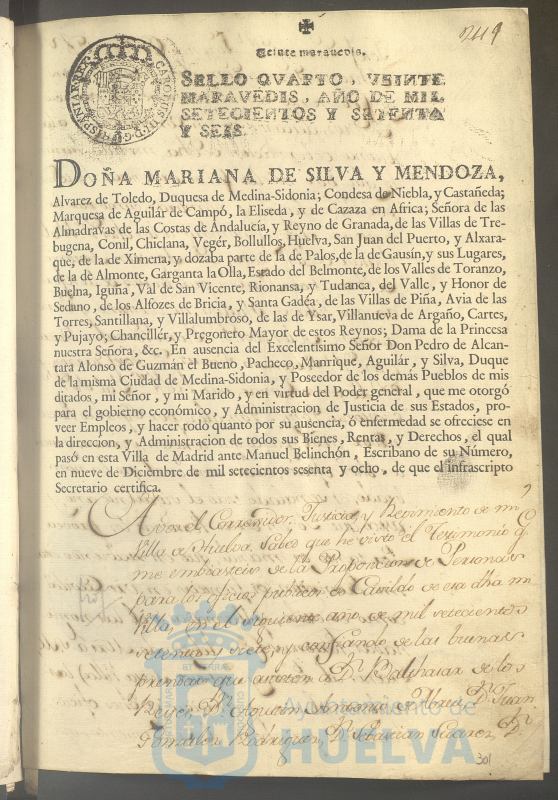 249
Veinte maravedis.
SELLO QVARTO, VEINTE
MARAVEDIS, AÑO DE MIL
SETECIENTOS Y SETENTA
Y SEIS.
DOÑA MARIANA DE SILVA Y MENDOZA,
Alvarez de Toledo, Duquesa de Medina-Sidonia; Condesa de Niebla, y Castañeda;
Marquesa de Aguilár de Campó, la Eliseda, y de Cazaza en Africa; Señora de las
Almadravas de las Costas de Andalucía, y Reyno de Granada, de las Villas de Tre-
bugena, Conil, Chiclana, Vegér, Bollullos, Huelva, San Juan del Puerto, y Alxara-
que, de la de Ximena, y dozaba parte de la de Palos, de la de Gausín, y sus Lugares,
de la de Almonte, Garganta la Olla, Estado del Belmonte, de los Valles de Toranzo,
Buelna, Iguña, Val de San Vicente, Rionansa, y Tudanca, del Valle, y Honor de
Sedano, de los Alfozes de Bricia, y Santa Gadéa, de las Villas de Piña, Avia de las
Torres, Santillana, y Villalumbroso, de las de Ysar, Villanueva de Argaño, Cartes,
y Pujayo; Chancillér, y Pregonero Mayor de estos Reynos; Dama de la Princesa
nuestra Señora, &c. En ausencia del Excelentisimo Señor Don Pedro de Alcan-
tara Alonso de Guzmán el Bueno, Pacheco, Manrique, Aguilár, y Silva, Duque
de la misma Ciudad de Medina-Sidonia, y Poseedor de los demás Pueblos de mis
ditados, mi Señor, y mi Marido, y en virtud del Poder general, que me otorgó
para el gobierno económico, y Administracion de Justicia de sus Estados, pro-
veer Empleos, y hacer todo quanto por su ausencia, ó enfermedad se ofreciese en
la direccion, y Administracion de todos sus Bienes, Rentas, y Derechos, el qual
pasó en esta Villa de Madrid ante Manuel Belinchón, Escribano de su Número,
en nueve de Diciembre de mil setecientos sesenta y ocho, de que el infrascripto
Secretario certifica.
A vos el Corregidor, Justicia, y Regimiento de mi
Villa de Huelva. Sabed que he visto el Testimonio q.
me embiasteis de la Proposicion de Personas
para los oficios publicos de Cavildo de esa dha mi
Villa, en el siguiente año de mil setecientos
setenta y siete, y confiando de las buenas
prendas que asisten a Dn. Balthasar de los
Reyes, Dn. Agustin Antonio de Mora, Dn. Juan
Gonzalez Rodriguez, Dn. Sebastian Suarez, Dn.
301
Ayuntamiento de
HUELVA